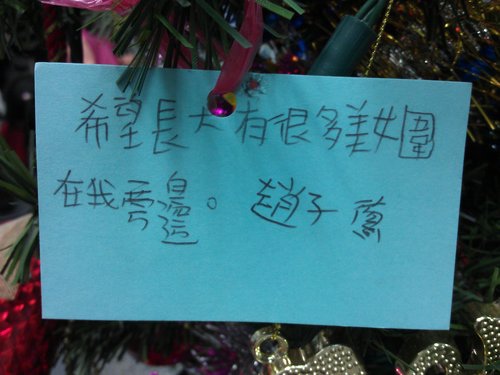 希望長大有很多美女圍
在我旁邊。趙子